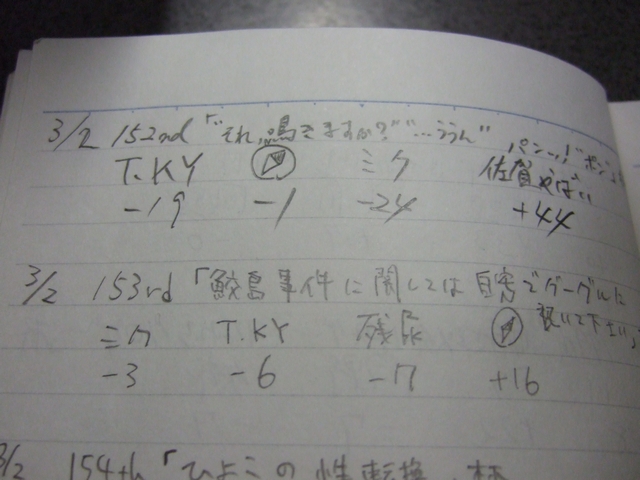 3/2 152nd 「"それ、鳴きますか?""…ううん"
T.KY ミク 佐賀やばい
-19 -1 -24 +44
3/2 153rd 「鮫島事件に関しては 自宅でグーグルに
聞いて下さい」
ミク T.KY 残尿
-3 -6 -7 +16
3/2 154th 「ひよこの性転換